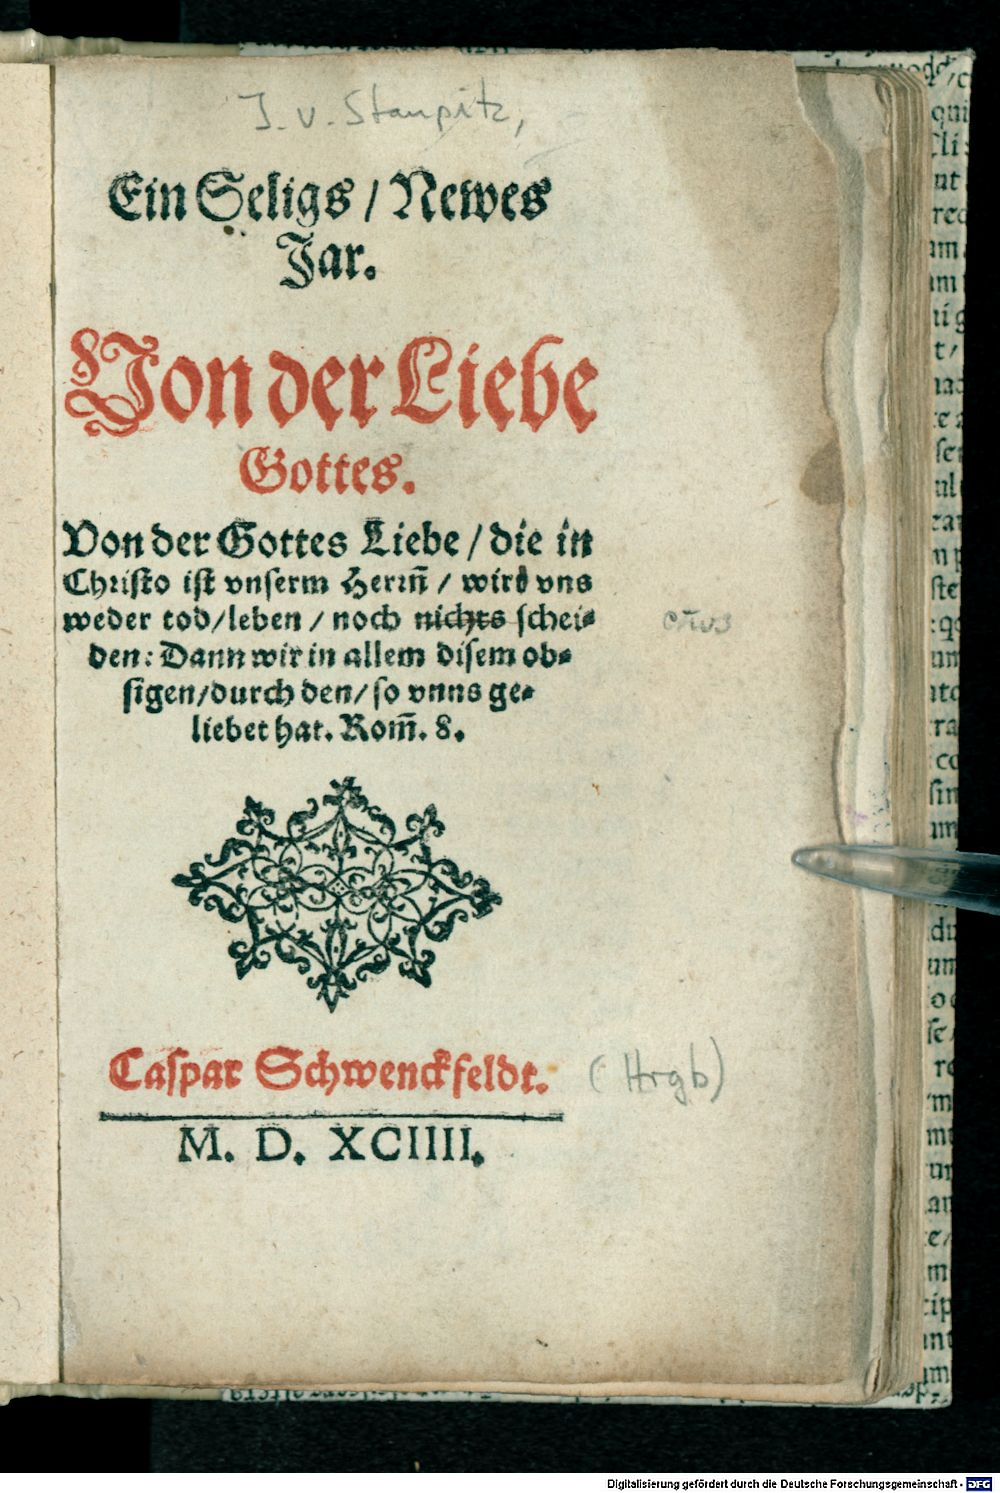 J. v. Staupitz,
Ein Seligs / Newes
Jar.
Von der Liebe
Gottes.
Von der Gottes Liebe / die in
Christo ist vnserm Herrn̄ / wird vns
weder tod / leben / noch nichts schei⸗
den: Dann wir in allem disem ob⸗
sigen / durch den / so vnns ge⸗
liebet hat. Rom̄. 8.
Caspar Schwenckfeldt. (Hrgb)
M. D. XCIIII.
Digitalisierung gefördert durch die Deutsche Forschungsgemeinschaft - DFG